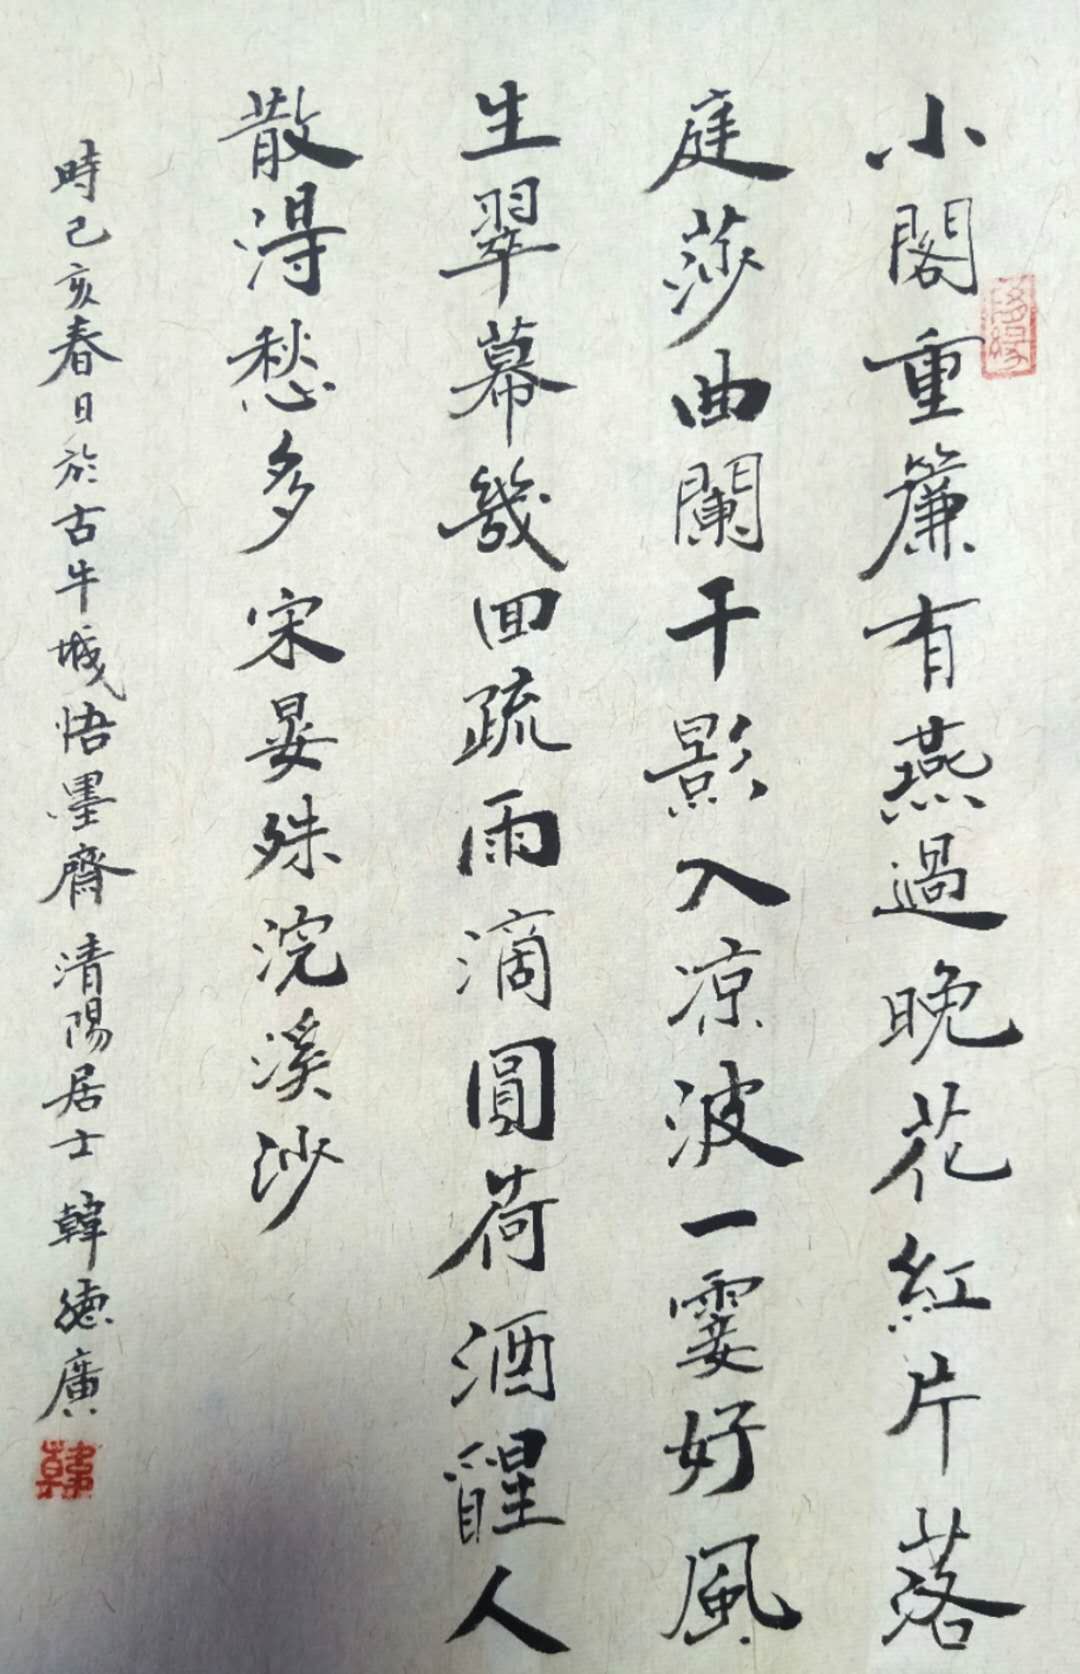 小閣重簾有燕過晚花紅片落
庭莎曲闌干影入凉波一霎好風
生翠幕幾回疏雨滴圓荷酒醒人
散得愁多宋晏殊浣溪沙
時己亥春日於古牛城悟墨齋清陽居士韓德廣
韓